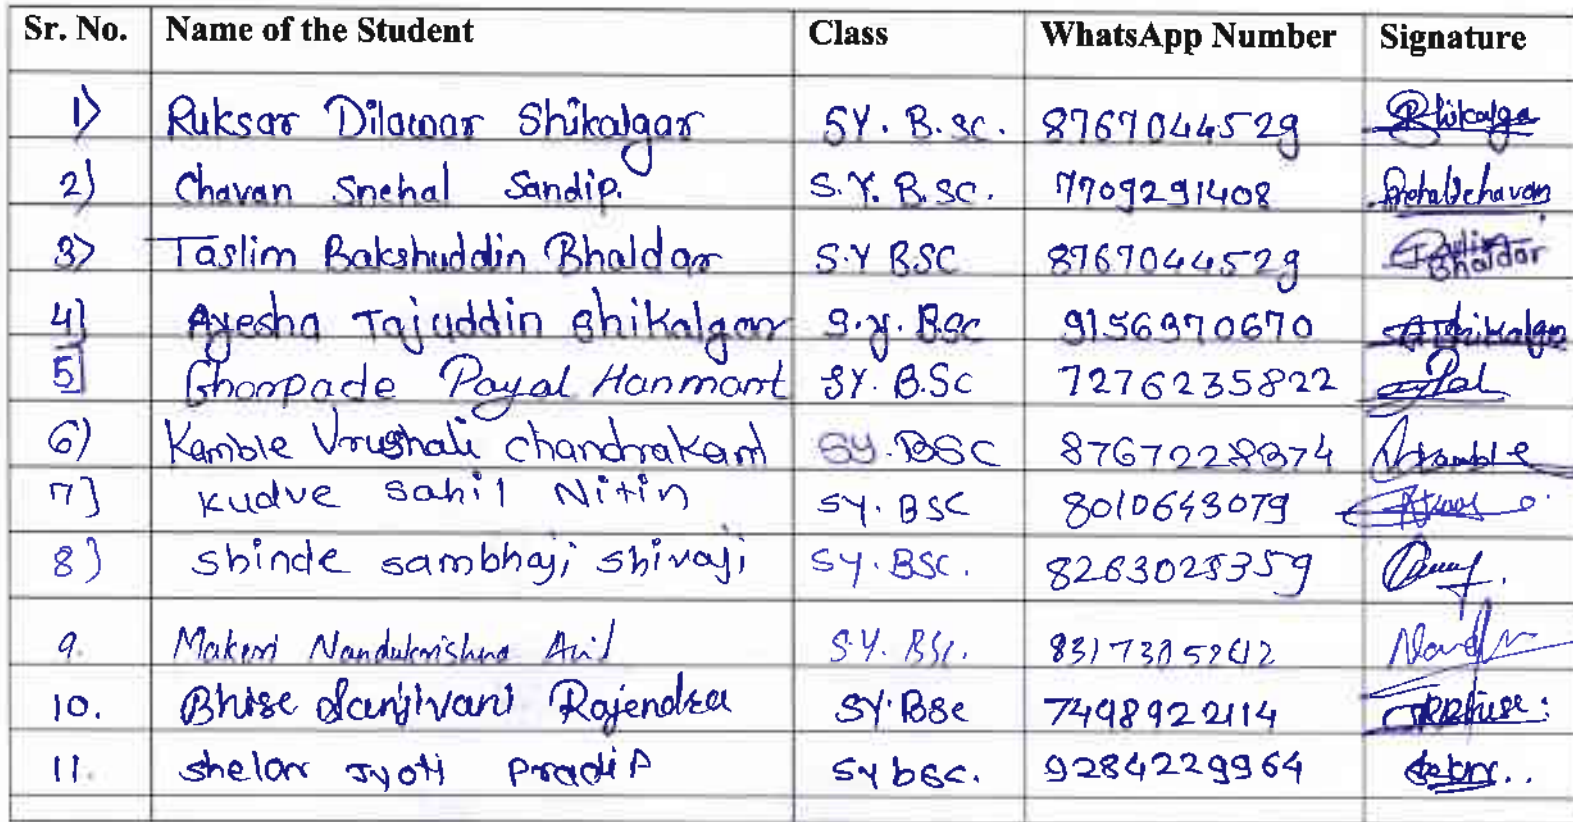 Sr. No. Name of the Student Class WhatsApp Number Signature
1) Ruksar Dilawar Shikalgar SY. B.sc. 8767044529
2) Chavan Snehal Sandip. S.Y. B.SC. 7709291408 Snehalchavan
3) Taslim Bakshuddin Bhaldar S.Y BSC 8767044529 Taslim Bhaldar
4] Ayesha Tajuddin Shikalgar S.y. BSC 9156970670
5] Ghorpade Payal Hanmant SY. B.SC 7276235822
6) Kamble Vrushali chandrakant SY. BSC 8767228374
7] kudve sahil Nitin SY. BSC 8010643079
8) shinde sambhaji shivaji SY. BSC. 8263025359
9. Nandukrishna Anil S.Y. BSc.
10. Bhise Sanjivani Rajendra SY.BSc 7498922114
11. shelar Jyoti Pradip SY bsc. 9284229964